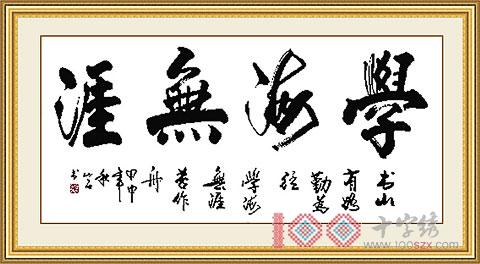 學海無涯
书山
有路
勤為
径
學海
無涯
苦作
舟
甲申
年
秋
书
100 十字绣
www.100szx.com